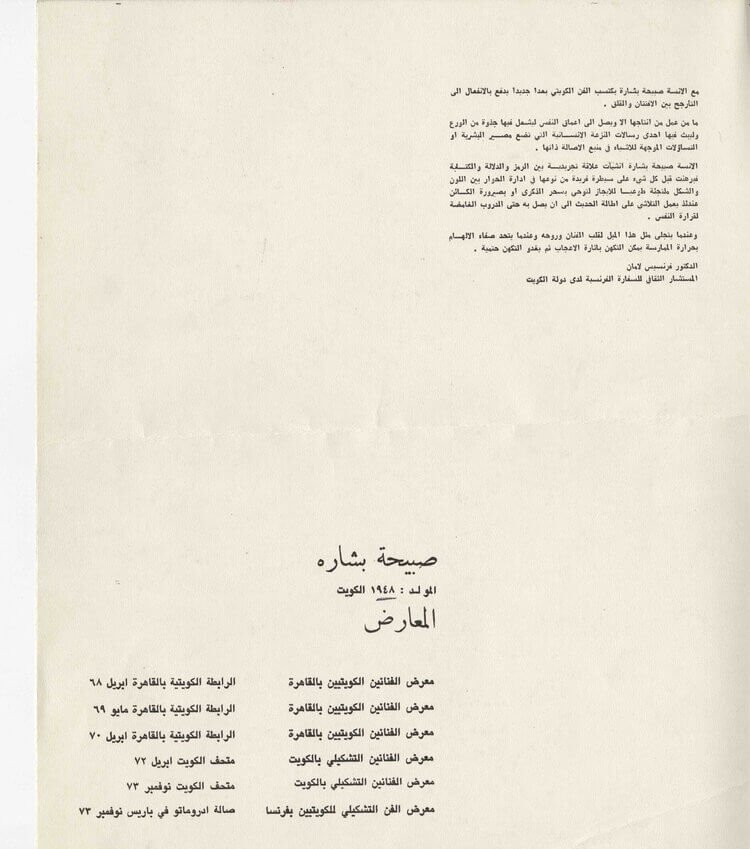 مع الانسة صبيحة بشارة يكتسب الفن الكويتي بعدا جديدا يدفع بالانفعال الى
التارجح بين الافتنان والقلق .
ما من عمل من انتاجها الا ويصل الى اعماق النفس ليشعل فيها جذوة من الورع
وليبث فيها احدى رسالات النزعة الانسانية التي تضع مصير البشرية او
التساؤلات الموجهة للاشياء في منبع الاصالة ذاتها .
الانسة صبيحة بشارة انشات علاقة تجريدية بين الرمز والدلالة والكتابة
فبرهنت قبل كل شيء على سيطرة فريدة من نوعها في ادارة الحوار بين اللون
والشكل ملتجئة طوعيا للايجاز لتوحي بسحر الذكرى او بصيرورة الكائن
عندئذ يعمل التلاشي على اطالة الحديث الى ان يصل به حتى الدروب الغامضة
لقرارة النفس .
وعندما يتجلى مثل هذا الميل لقلب الفنان وروحه وعندما يتحد صفاء الالهام
بحرارة الممارسة يمكن التكهن باثارة الاعجاب ثم يغدو التكهن حتمية .
الدكتور فرنسيس لامان
المستشار الثقافي للسفارة الفرنسية لدى دولة الكويت
صبيحة بشاره
المولد : ١٩٤٨ الكويت
المعارض
معرض الفنانين الكويتيين بالقاهرة الرابطة الكويتية بالقاهرة ابريل ٦٨
معرض الفنانين الكويتيين بالقاهرة الرابطة الكويتية بالقاهرة مايو ٦٩
معرض الفنانين الكويتيين بالقاهرة الرابطة الكويتية بالقاهرة ابريل ٧٠
معرض الفنانين التشكيلي بالكويت متحف الكويت ابريل ٧٢
معرض الفنانين التشكيلي بالكويت متحف الكويت نوفمبر ٧٣
معرض الفن التشكيلي للكويتيين بفرنسا صالة ادروماتو في باريس نوفمبر ٧٣